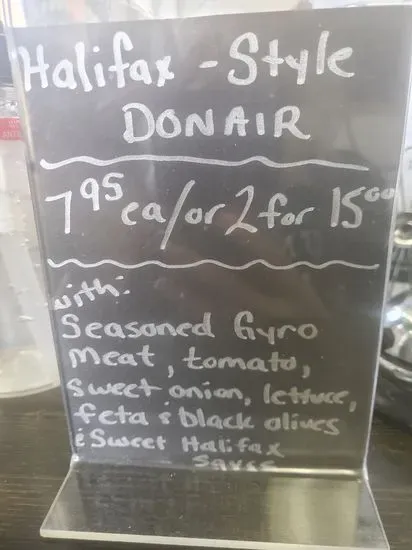 Halifax - Style
DONAIR
7 95 ea/or 2 for 15 00
with:
Seasoned Gyro
meat, tomato,
sweet onion, lettuce,
feta & black olives
& Sweet Halifax